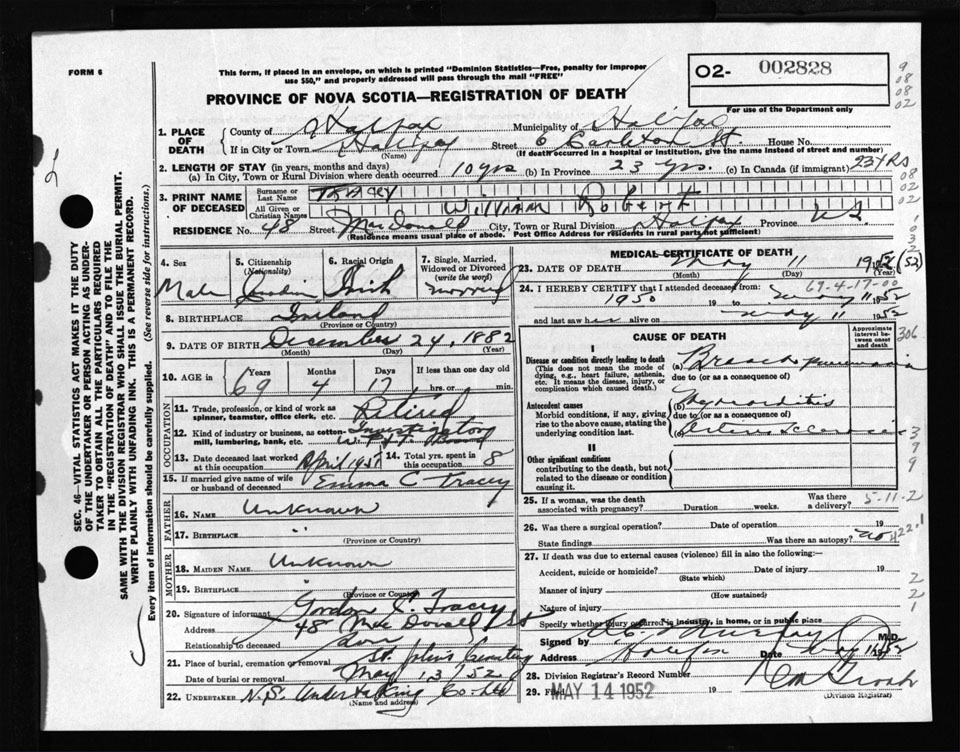 FORM 6
This form, if placed in an envelope, on which is printed "Dominion Statistics—Free, penalty for improper
use $50," and properly addressed will pass through the mail "FREE"
PROVINCE OF NOVA SCOTIA—REGISTRATION OF DEATH
O2- 002828
For use of the Department only
1. PLACE OF DEATH
County of Halifax Municipality of Halifax
If in City or Town Halifax Street House No.
(Name) (If death occurred in a hospital or institution, give the name instead of street and number)
2. LENGTH OF STAY (in years, months and days)
(a) In City, Town or Rural Division where death occurred 10 yrs (b) In Province 23 yrs. (c) In Canada (if immigrant) 23 YRS
3. PRINT NAME OF DECEASED
Surname or Last Name TRACEY
All Given or Christian Names William Robert
RESIDENCE No. 48 Street MacDonald City, Town or Rural Division Halifax Province N.S.
(Residence means usual place of abode. Post Office Address for residents in rural parts not sufficient)
4. Sex
Male
5. Citizenship (Nationality)
6. Racial Origin
Irish
7. Single, Married, Widowed or Divorced (write the word)
8. BIRTHPLACE Ireland
(Province or Country)
9. DATE OF BIRTH December 24, 1882
(Month) (Day) (Year)
10. AGE in Years Months Days If less than one day old
69 4 17 hrs. or min.
OCCUPATION
11. Trade, profession, or kind of work as spinner, teamster, office clerk, etc. Retired
12. Kind of industry or business, as cotton-mill, lumbering, bank, etc. Investigator
13. Date deceased last worked at this occupation April 1951
14. Total yrs. spent in this occupation 8
15. If married give name of wife or husband of deceased Emma C Tracey
FATHER
16. NAME Unknown
17. BIRTHPLACE "
(Province or Country)
MOTHER
18. MAIDEN NAME Unknown
19. BIRTHPLACE "
(Province or Country)
20. Signature of informant Gordon L. Tracey
Address 48 MacDonald St
Relationship to deceased Son
21. Place of burial, cremation or removal St. John's Cemetery
Date of burial or removal May 13 52
22. UNDERTAKER N.S. Undertaking Co. Ltd
(Name and address)
MEDICAL CERTIFICATE OF DEATH
23. DATE OF DEATH May 11 1952 (52)
(Month) (Day) (Year)
24. I HEREBY CERTIFY that I attended deceased from: 69-4-17-00
1950 19 to May 11 1952
and last saw h alive on May 11 1952
CAUSE OF DEATH
Approximate interval between onset and death
I
Disease or condition directly leading to death
(This does not mean the mode of dying, e.g., heart failure, asthenia, etc. It means the disease, injury, or complication which caused death.)
(a) Bronchopneumonia
due to (or as a consequence of)
Antecedent causes
Morbid conditions, if any, giving rise to the above cause, stating the underlying condition last.
(b) Myocarditis
due to (or as a consequence of)
(c) Arteriosclerosis
II
Other significant conditions
contributing to the death, but not related to the disease or condition causing it.
25. If a woman, was the death associated with pregnancy? Duration weeks. Was there a delivery?
5-11-2
26. Was there a surgical operation? Date of operation 19
State findings Was there an autopsy? no
27. If death was due to external causes (violence) fill in also the following:—
Accident, suicide or homicide? Date of injury 19
(State which)
Manner of injury
(How sustained)
Nature of injury
Specify whether injury occurred in industry, in home, or in public place
Signed by Murphy M.D.
Address Halifax Date May 11 1952
28. Division Registrar's Record Number
29. Filed MAY 14 1952 19
(Division Registrar)
SEC. 46—VITAL STATISTICS ACT MAKES IT THE DUTY
OF THE UNDERTAKER OR PERSON ACTING AS UNDER-
TAKER TO OBTAIN ALL THE PARTICULARS REQUIRED
IN THE "REGISTRATION OF DEATH" AND TO FILE THE
SAME WITH THE DIVISION REGISTRAR WHO SHALL ISSUE THE BURIAL PERMIT.
WRITE PLAINLY WITH UNFADING INK. THIS IS A PERMANENT RECORD.
Every item of information should be carefully supplied. (See reverse side for instructions.)